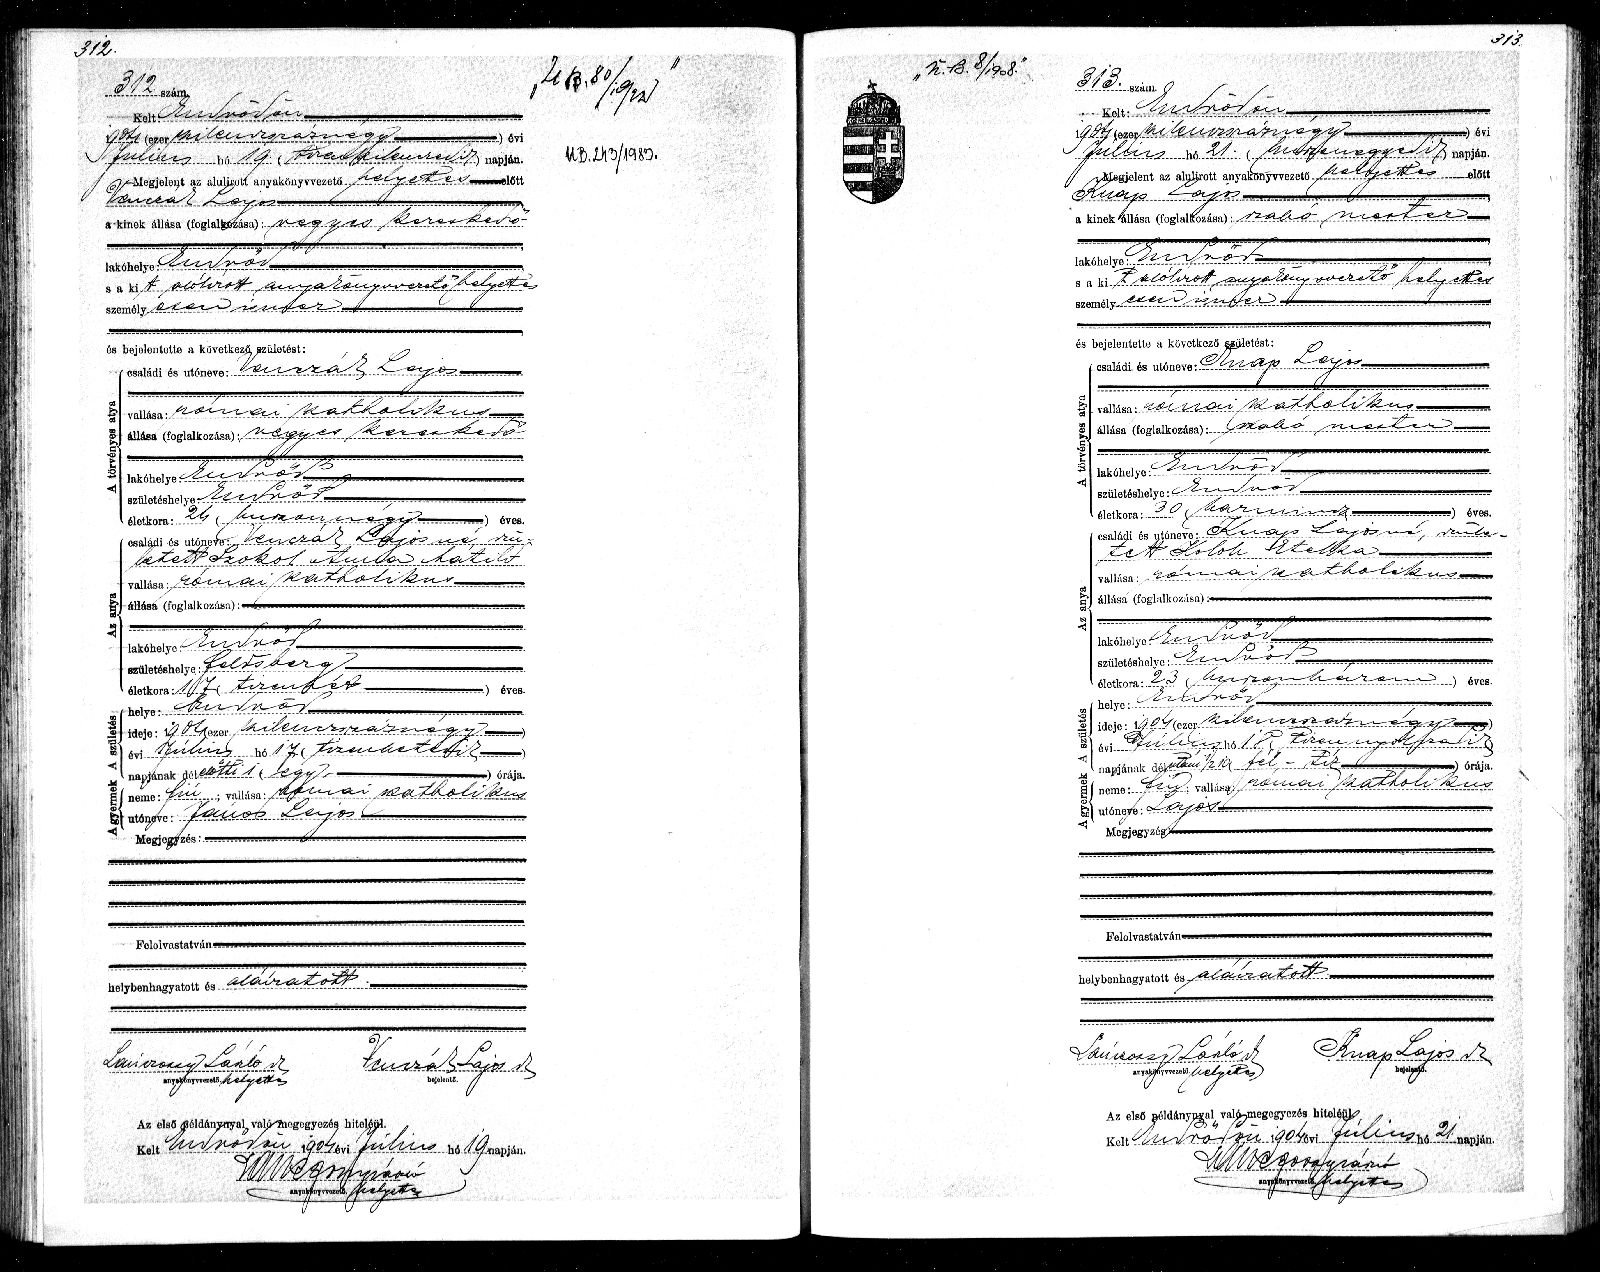 312.
312 szám.
"U B. 80/1922"
Kelt Endrődön
1904 (ezer kilenczszáznégy) évi
Július hó 19. (tizenkilenczedik) napján.
U.B. 243/1983.
Megjelent az alulirott anyakönyvvezető helyettes előtt
Venczák Lajos
a kinek állása (foglalkozása): vegyes kereskedő
lakóhelye: Endrőd
s a kit alólirott anyakönyvvezető helyettes
személyesen ismer
és bejelentette a következő születést:
A törvényes atya
családi és utóneve: Venczák Lajos
vallása: római katholikus
állása (foglalkozása): vegyes kereskedő
lakóhelye: Endrőd
születéshelye: Endrőd
életkora: 24 (huszonnégy) éves.
Az anya
családi és utóneve: Venczák Lajosné, szü-
letett Szokol Anna
vallása: római katholikus
állása (foglalkozása):
lakóhelye Endrőd
születéshelye: Feldsberg
életkora: 17 (tizenhét) éves.
A gyermek A születés
helye: Endrőd
ideje: 1904 (ezer kilenczszáznégy)
évi Július hó 17 (tizenhetedik)
napjának délelőtti 1 (egy) órája.
neme: fiú; vallása: római katholikus
utóneve: János Lajos
Megjegyzés:
Felolvastatván
helybenhagyatott és aláiratott.
László sk Venczák Lajos sk
anyakönyvvezető helyettes bejelentő.
Az első példánynyal való megegyezés hiteléül.
Kelt Endrődön 1904 évi Július hó 19 napján.
anyakönyvvezető helyettes
313
313. szám
"U.B. 8/1908."
Kelt: Endrődön
1904 (ezer kilenczszáznégy) évi
Július hó 21. (huszonegyedik) napján.
Megjelent az alulirott anyakönyvvezető helyettes előtt
Knap Lajos
a kinek állása (foglalkozása): szabó mester
lakóhelye: Endrőd
s a kit alólirott anyakönyvvezető helyettes
személyesen ismer
és bejelentette a következő születést:
A törvényes atya
családi és utóneve: Knap Lajos
vallása: római katholikus
állása (foglalkozása): szabó mester
lakóhelye: Endrőd
születéshelye: Endrőd
életkora: 30 (harmincz) éves.
Az anya
családi és utóneve: Knap Lajosné, szüle-
tett Etelka
vallása: római katholikus
állása (foglalkozása):
lakóhelye Endrőd
születéshelye: Endrőd
életkora: 23 (huszonhárom) éves.
A gyermek A születés
helye: Endrőd
ideje: 1904 (ezer kilenczszáznégy)
évi Július hó 18 (tizennyolczadik)
napjának délutáni 1/2 10 (fél-tiz) órája.
neme: fiú; vallása: római katholikus
utóneve: Lajos
Megjegyzés:
Felolvastatván
helybenhagyatott és aláiratott
László sk Knap Lajos sk
anyakönyvvezető helyettes bejelentő.
Az első példánynyal való megegyezés hiteléül.
Kelt Endrődön 1904 évi Július hó 21 napján.
anyakönyvvezető helyettes